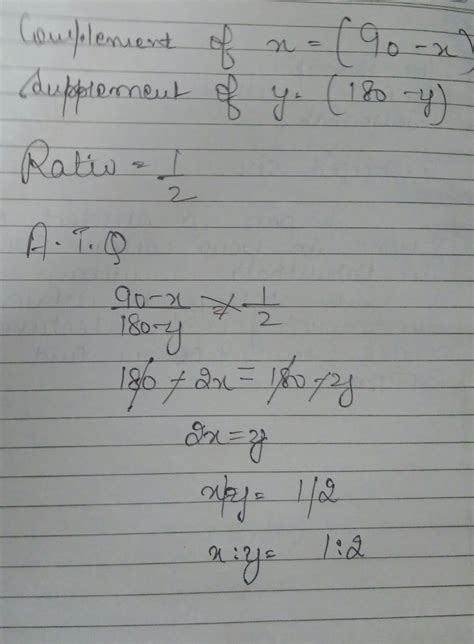 Complement of x = (90 - x)
Supplement of y = (180 - y)
Ratio = 1/2
A.T.Q
90-x/180-y = 1/2
180 - 2x = 180 - y
2x = y
x/y = 1/2
x:y = 1:2